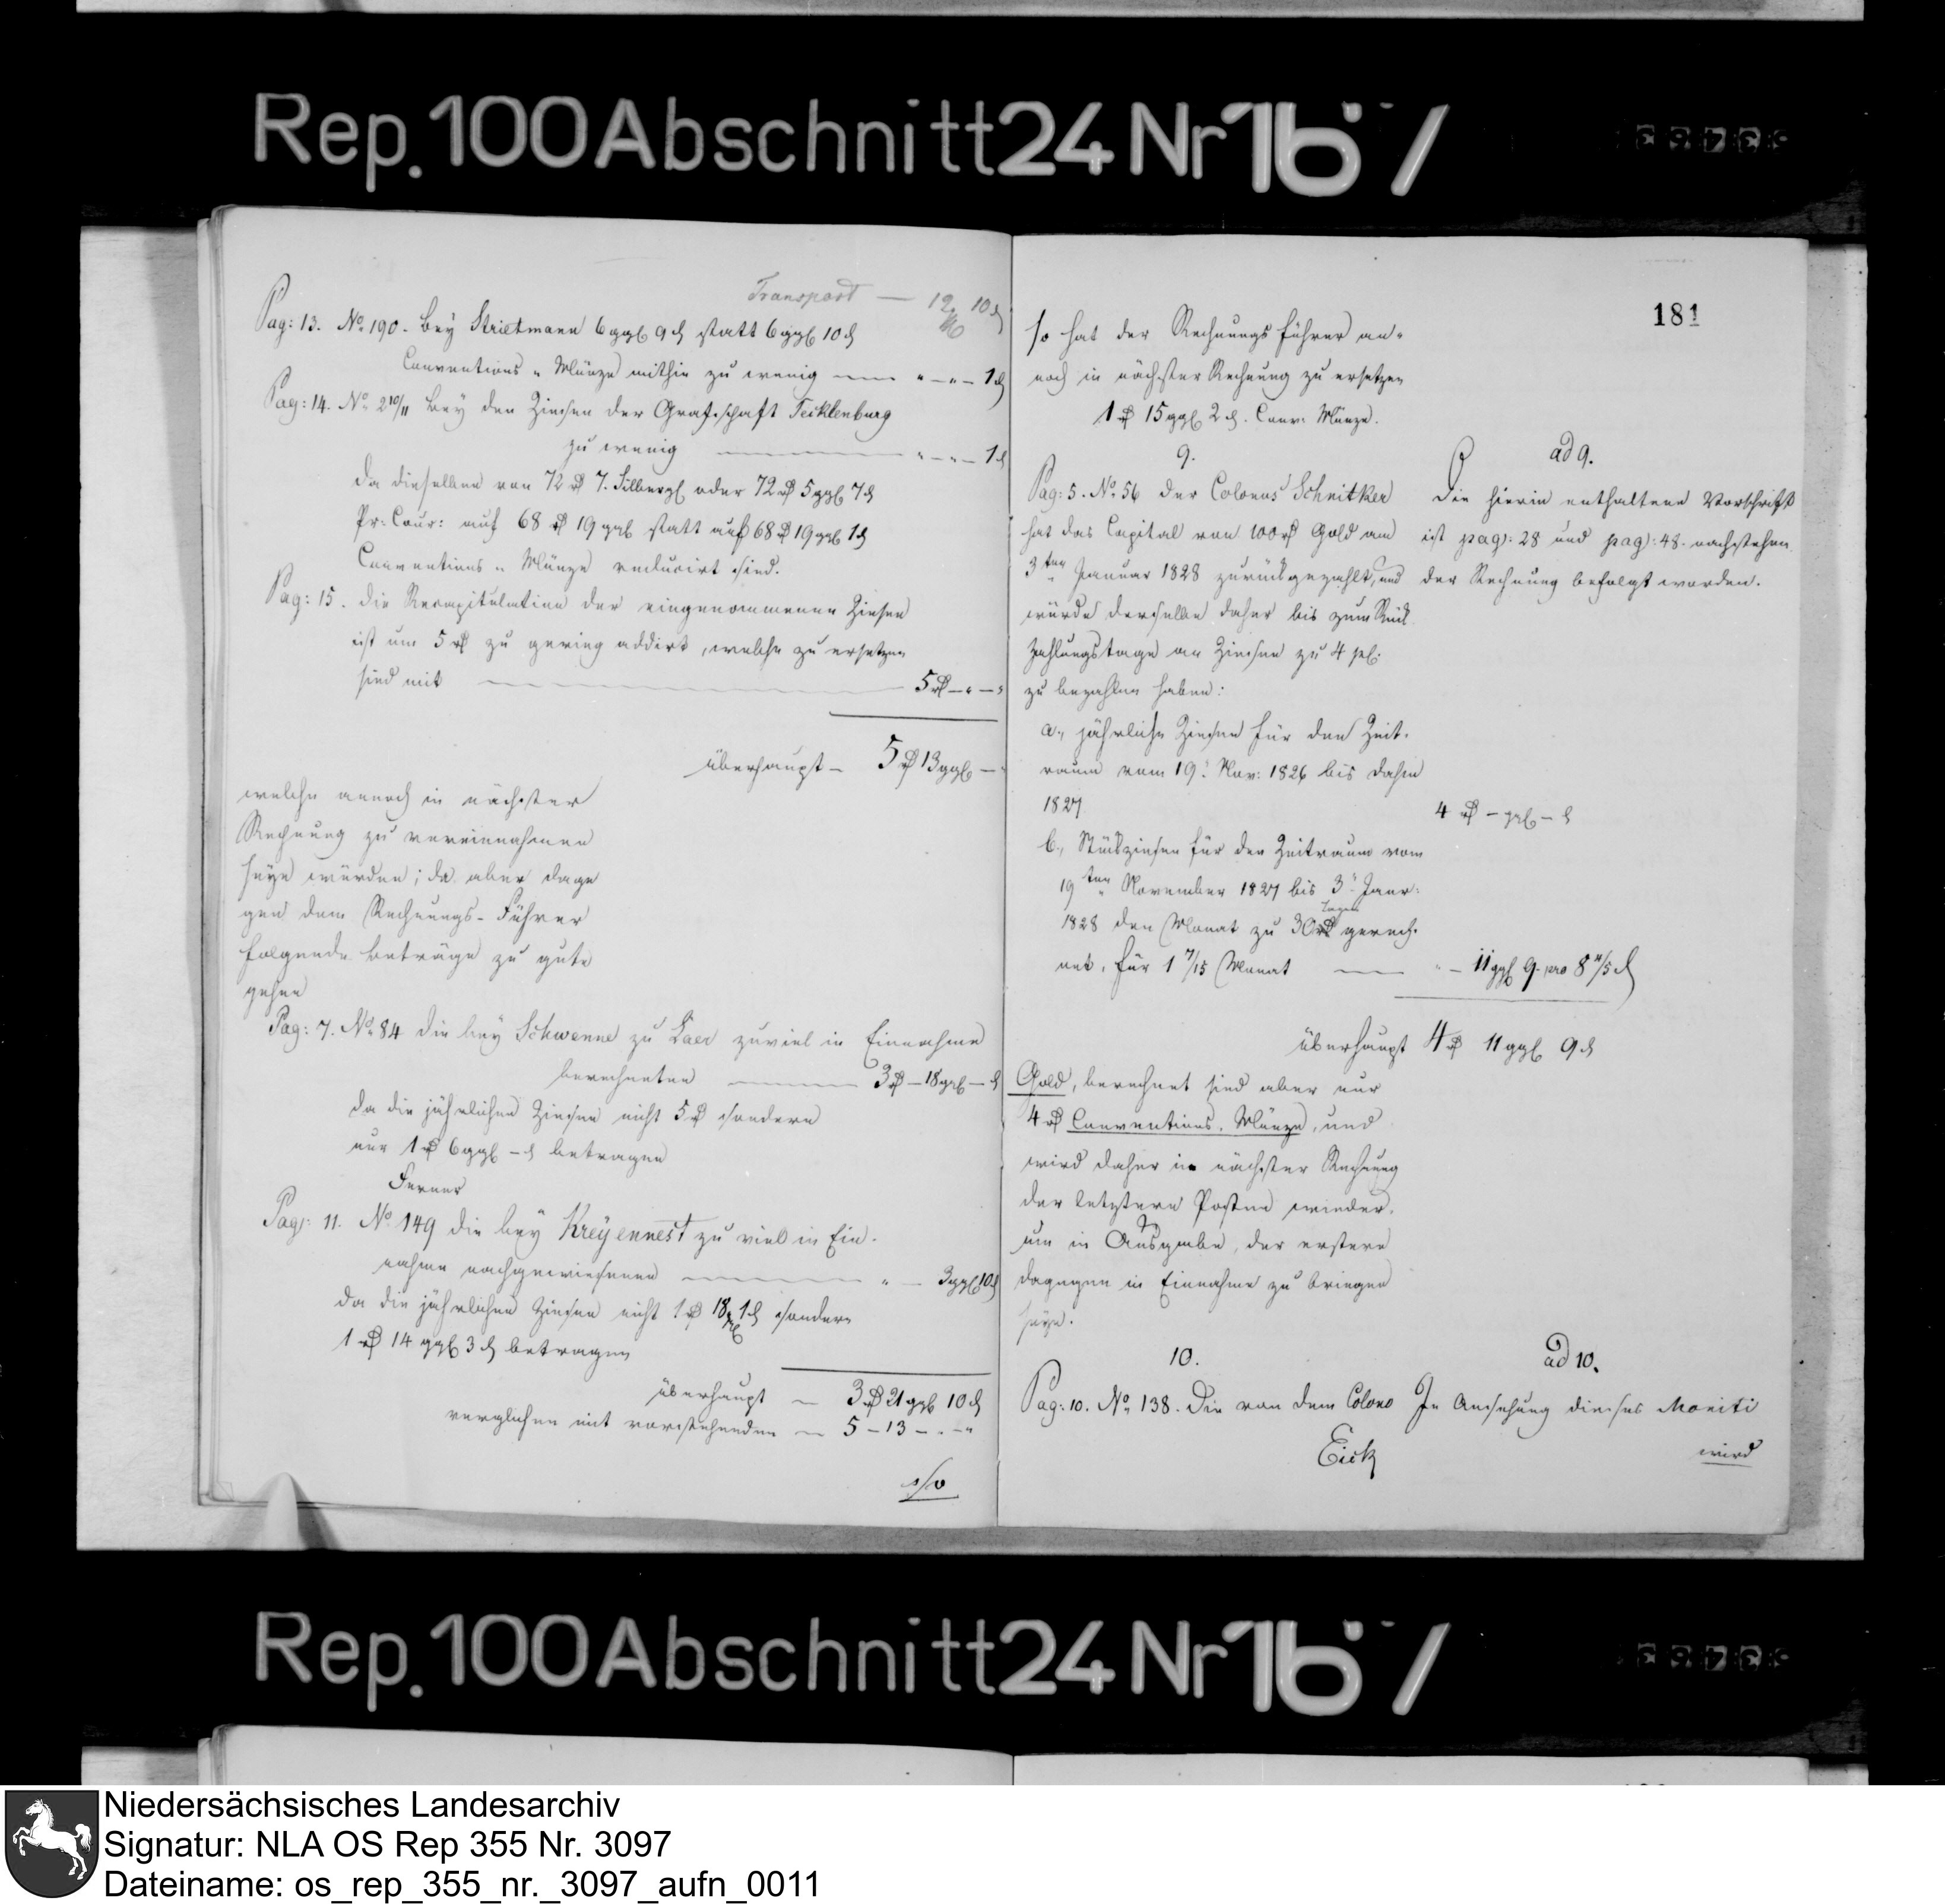 Rep. 100 Abschnitt 24 Nr 167
Transport — 12 10 ₰
Pag: 13. No 190. bey Strietmann 6 ggl 9 ₰ statt 6 ggl 10 ₰
Conventions-Münze mithin zu wenig — " — " — 1 ₰
Pag: 14. No 2 10/11 bey den Zinsen der Grafschaft Tecklenburg
zu wenig — " — " — 1 ₰
da dieselben von 72 rℓ 7. Silbergl oder 72 rℓ 5 ggl 7 ₰
Pr: Cour: auf 68 rℓ 19 ggl statt auf 68 rℓ 19 ggl 1 ₰
Conventions-Münze reducirt sind.
Pag: 15. die Recapitulation der eingenommenen Zinsen
ist um 5 rℓ zu gering addirt, welche zu ersetzen
sind mit — 5 rℓ — " — "
überhaupt — 5 rℓ 13 ggl —
welche annoch in nächster
Rechnung zu vereinnahmen
seyn würden; da aber dage
gen dem Rechnungs-Führer
folgende Beträge zu gute
gehen
Pag: 7. No 84 die bey Schwenne zu Laer zuviel in Einnahme
berechneten — 3 rℓ — 18 ggl — ₰
da die jährlichen Zinsen nicht 5 rℓ sondern
nur 1 rℓ 6 ggl — ₰ betragen
Ferner
Pag: 11. No 149 die bey Kreyennest zu viel in Ein-
nahme nachgewiesenen — " — 3 ggl 10 ₰
da die jährlichen Zinsen nicht 1 rℓ 18 ggl 1 ₰ sondern
1 rℓ 14 ggl 3 ₰ betragen
überhaupt — 3 rℓ 21 ggl 10 ₰
verglichen mit vorstehenden — 5 — 13 — " — "
so
181
so hat der Rechnungsführer an-
noch in nächster Rechnung zu ersetzen
1 rℓ 15 ggl 2 ₰. Conv: Münze.
9.
Pag: 5. No 56 der Colonus Schnitker
hat das Capital von 100 rℓ Gold am
3ten Januar 1828 zurückgezahlt, und
würde derselbe daher bis zum Rück
zahlungstage an Zinsen zu 4 pC.
zu bezahlen haben:
a., jährliche Zinsen für den Zeit-
raum vom 19. Nov: 1826 bis dahin
1827 4 rℓ — ggl — ₰
b., Stückzinsen für den Zeitraum vom
19ten November 1827 bis 3. Janr:
1828 den Monat zu 30 Tagen gerech-
net, für 1 7/15 Monat — " — 11 ggl 9. pro 8 4/5 ₰
überhaupt 4 rℓ 11 ggl 9 ₰
Gold, berechnet sind aber nur
4 rℓ Conventions-Münze, und
wird daher in nächster Rechnung
der letztere Posten wieder-
um in Ausgabe, der erstere
dagegen in Einnahme zu bringen
seyn.
10.
Pag: 10. No 138. Die von dem Colono
Eick
ad 9.
Die hierin enthaltene Vorschrift
ist pag: 28 und pag: 48. nachstehen
der Rechnung befolgt worden.
ad 10.
In Ansehung dieses Moniti
wird
Rep. 100 Abschnitt 24 Nr 167
Niedersächsisches Landesarchiv
Signatur: NLA OS Rep 355 Nr. 3097
Dateiname: os_rep_355_nr._3097_aufn_0011